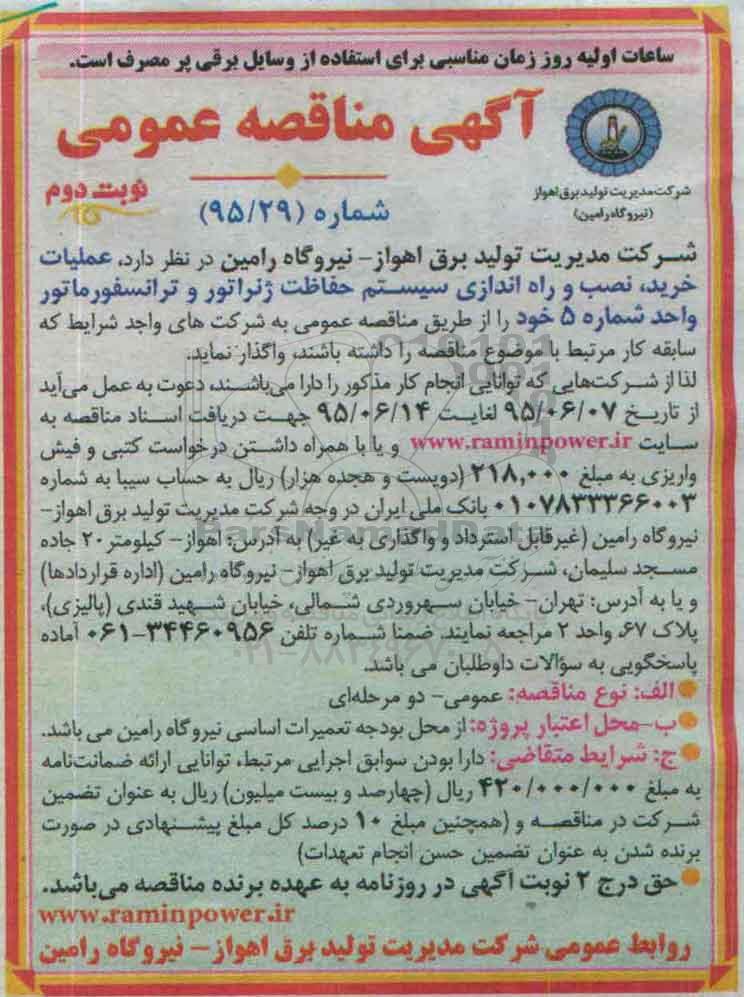 ساعات اولیه روز زمان مناسبی برای استفاده از وسایل برقی پر مصرف است.
آگهی مناقصه عمومی
شرکت مدیریت تولید برق اهواز
(نیروگاه رامین)
نوبت دوم
شماره (۹۵/۲۹)
شرکت مدیریت تولید برق اهواز- نیروگاه رامین در نظر دارد، عملیات
خرید، نصب و راه اندازی سیستم حفاظت ژنراتور و ترانسفورماتور
واحد شماره ۵ خود را از طریق مناقصه عمومی به شرکت های واجد شرایط که
سابقه کار مرتبط با موضوع مناقصه را داشته باشند، واگذار نماید.
لذا از شرکت‌هایی که توانایی انجام کار مذکور را دارا می‌باشند، دعوت به عمل می‌آید
از تاریخ ۹۵/۰۶/۰۷ لغایت ۹۵/۰۶/۱۴ جهت دریافت اسناد مناقصه به
سایت www.raminpower.ir و یا با همراه داشتن درخواست کتبی و فیش
واریزی به مبلغ ۲۱۸,۰۰۰ (دویست و هجده هزار) ریال به حساب سیبا به شماره
۰۱۰۷۸۳۳۳۶۶۰۰۳ بانک ملی ایران در وجه شرکت مدیریت تولید برق اهواز-
نیروگاه رامین (غیرقابل استرداد و واگذاری به غیر) به آدرس: اهواز- کیلومتر ۲۰ جاده
مسجد سلیمان، شرکت مدیریت تولید برق اهواز- نیروگاه رامین (اداره قراردادها)
و یا به آدرس: تهران- خیابان سهروردی شمالی، خیابان شهید قندی (پالیزی)،
پلاک ۶۷، واحد ۲ مراجعه نمایند. ضمنا شماره تلفن ۳۴۴۶۰۹۵۶-۰۶۱ آماده
پاسخگویی به سؤالات داوطلبان می باشد.
الف: نوع مناقصه: عمومی- دو مرحله‌ای
ب-محل اعتبار پروژه: از محل بودجه تعمیرات اساسی نیروگاه رامین می باشد.
ج: شرایط متقاضی: دارا بودن سوابق اجرایی مرتبط، توانایی ارائه ضمانت‌نامه
به مبلغ ۴۲۰/۰۰۰/۰۰۰ ریال (چهارصد و بیست میلیون) ریال به عنوان تضمین
شرکت در مناقصه و (همچنین مبلغ ۱۰ درصد کل مبلغ پیشنهادی در صورت
برنده شدن به عنوان تضمین حسن انجام تعهدات)
حق درج ۲ نوبت آگهی در روزنامه به عهده برنده مناقصه می‌باشد.
www.raminpower.ir
روابط عمومی شرکت مدیریت تولید برق اهواز – نیروگاه رامین